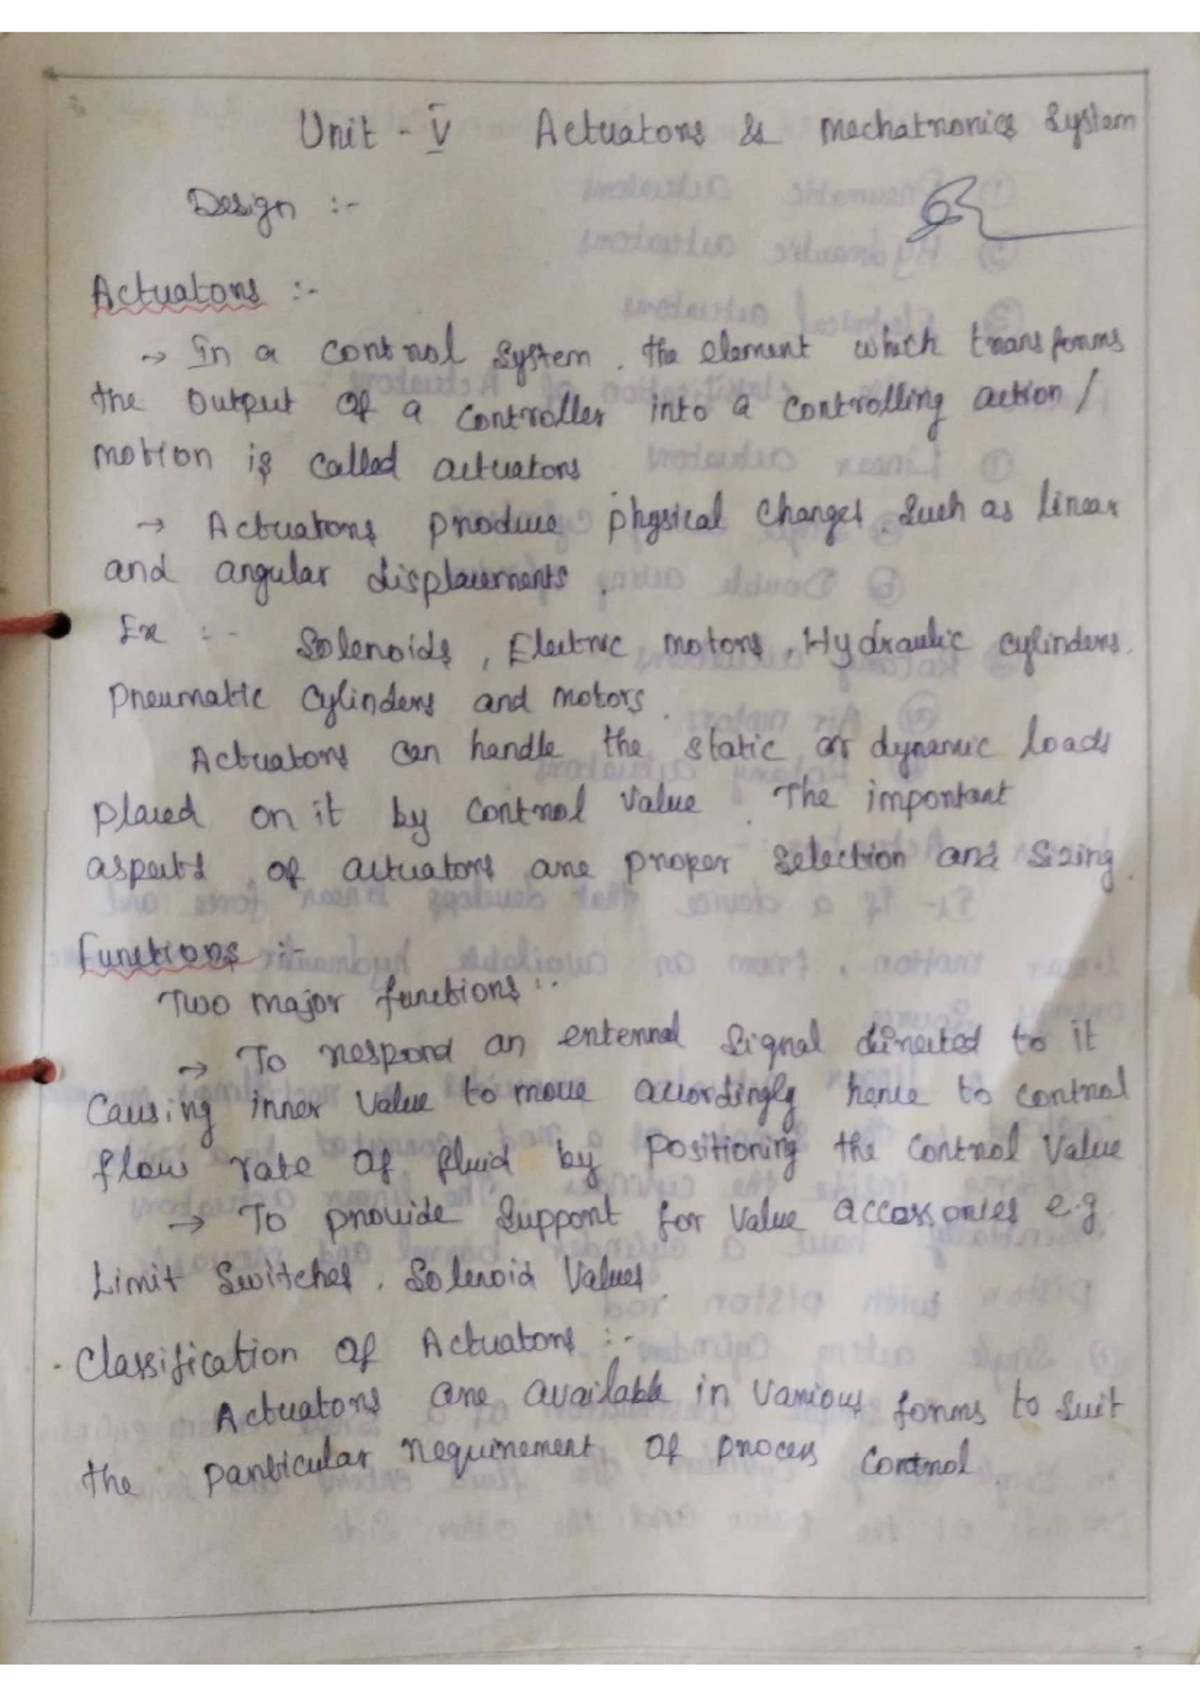 Unit - V Actuators & mechatronics System
Design :-
Actuators :-
→ In a control system, the element which transforms
the output of a controller into a controlling action /
motion is called actuators
→ Actuators produce physical changes such as linear
and angular displacements.
Ex :- Solenoids, Electric motors, Hydraulic cylinders.
Pneumatic cylinders and motors.
Actuators can handle the static or dynamic loads
placed on it by control value. The important
aspects of actuators are proper selection and sizing.
Functions :-
Two major functions :-
→ To respond an enternal signal directed to it
causing inner value to move accordingly hence to control
flow rate of fluid by positioning the control value
→ To provide support for value accessories e.g
Limit switches, Solenoid values.
Classification of Actuators :-
Actuators are available in various forms to suit
the particular requirement of process control